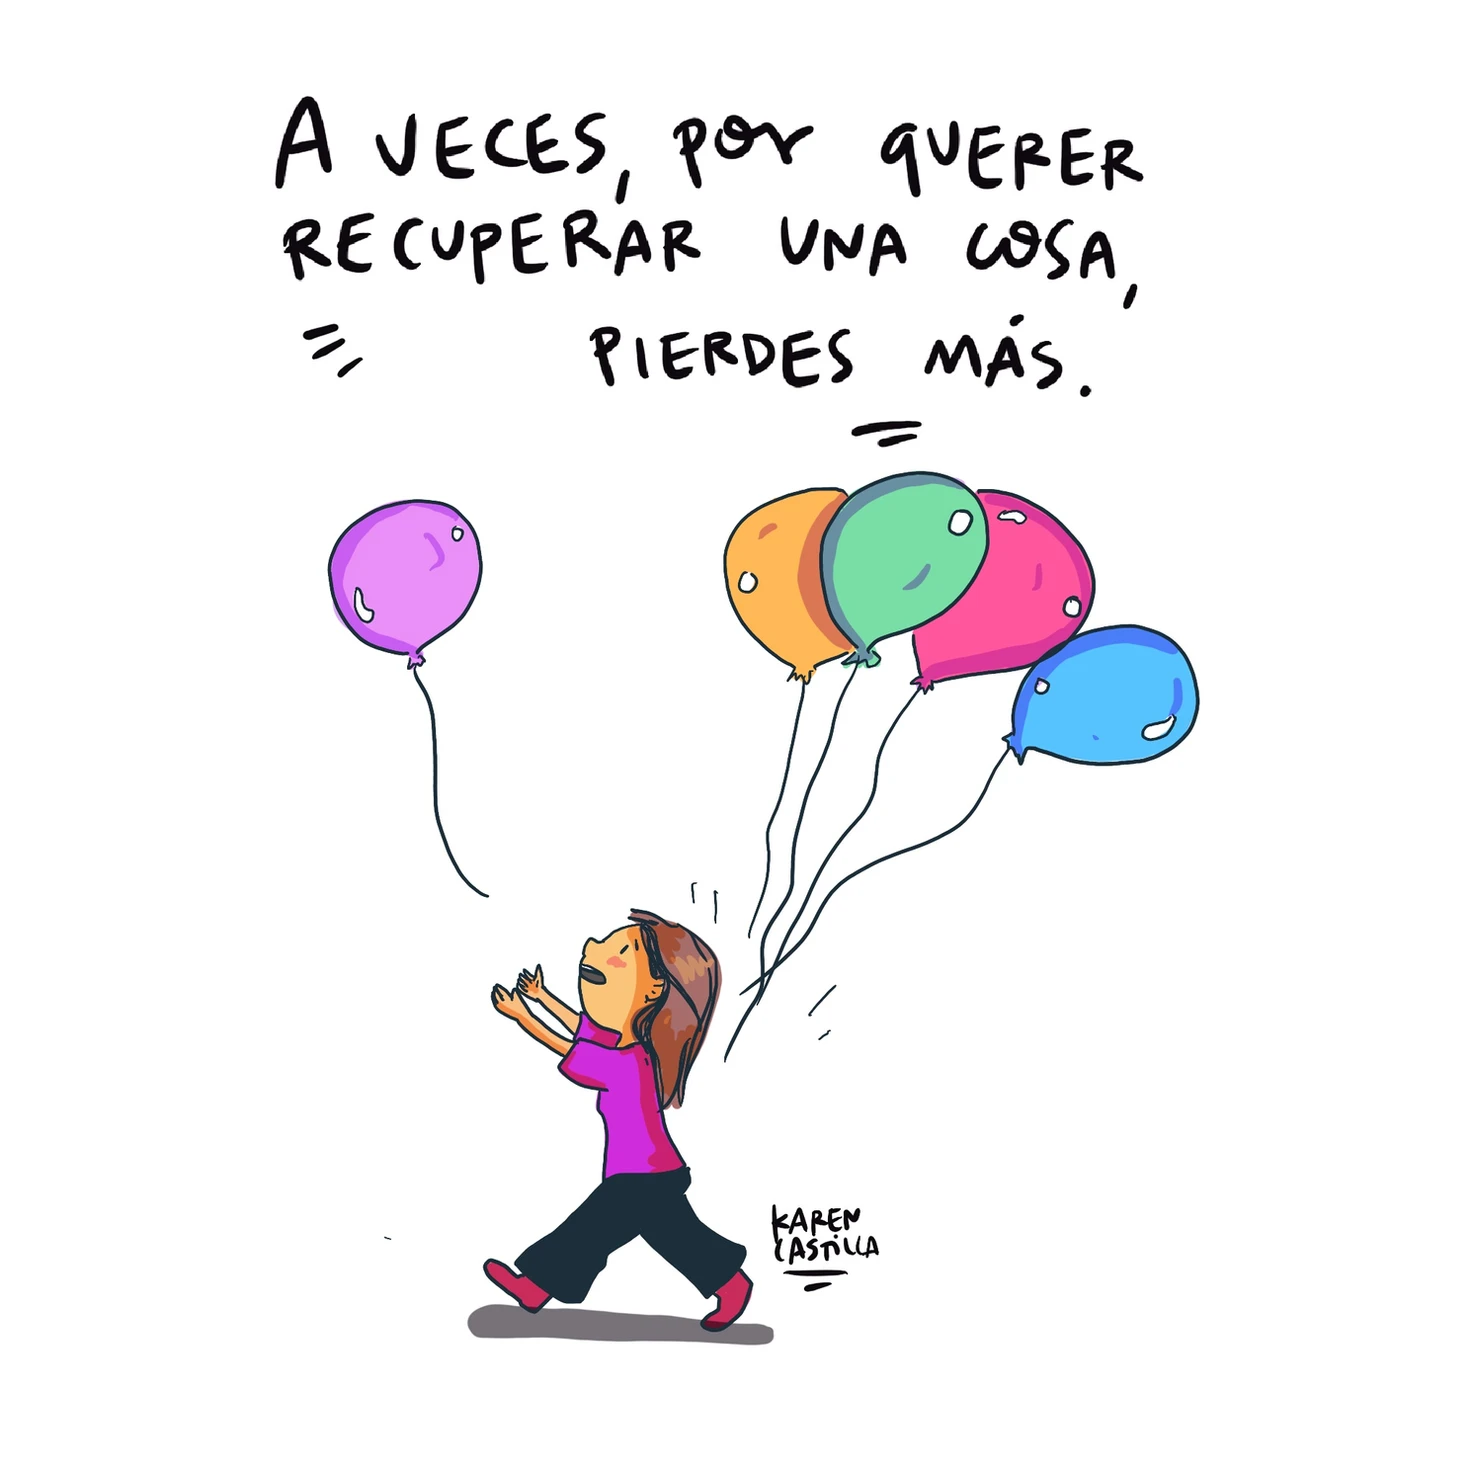 A VECES, por QUERER
RECUPERAR UNA COSA,
PIERDES MÁS.
KAREN
CASTILLA